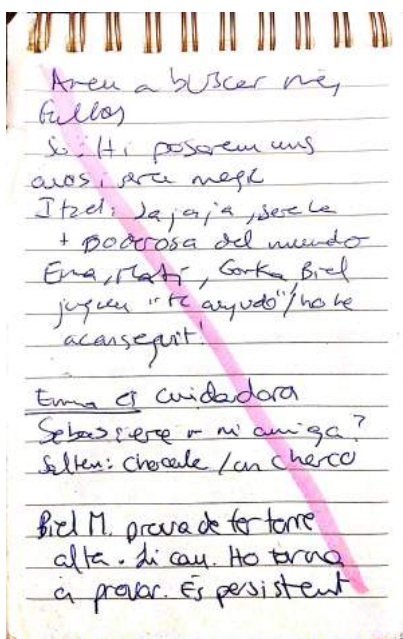 Aneu a buscar més
fullos
Hi posarem uns
serà
Itzel: Jajaja, seré la
+ poderosa del mundo
Ema, Martí, Gorka, Biel
juguen "te ayudo"/ho he
aconseguit!
Emma es cuidadora
mi amiga?
Salten:
Biel M. prova de fer torre
alta. Li cau. Ho torna
a provar. És persistent